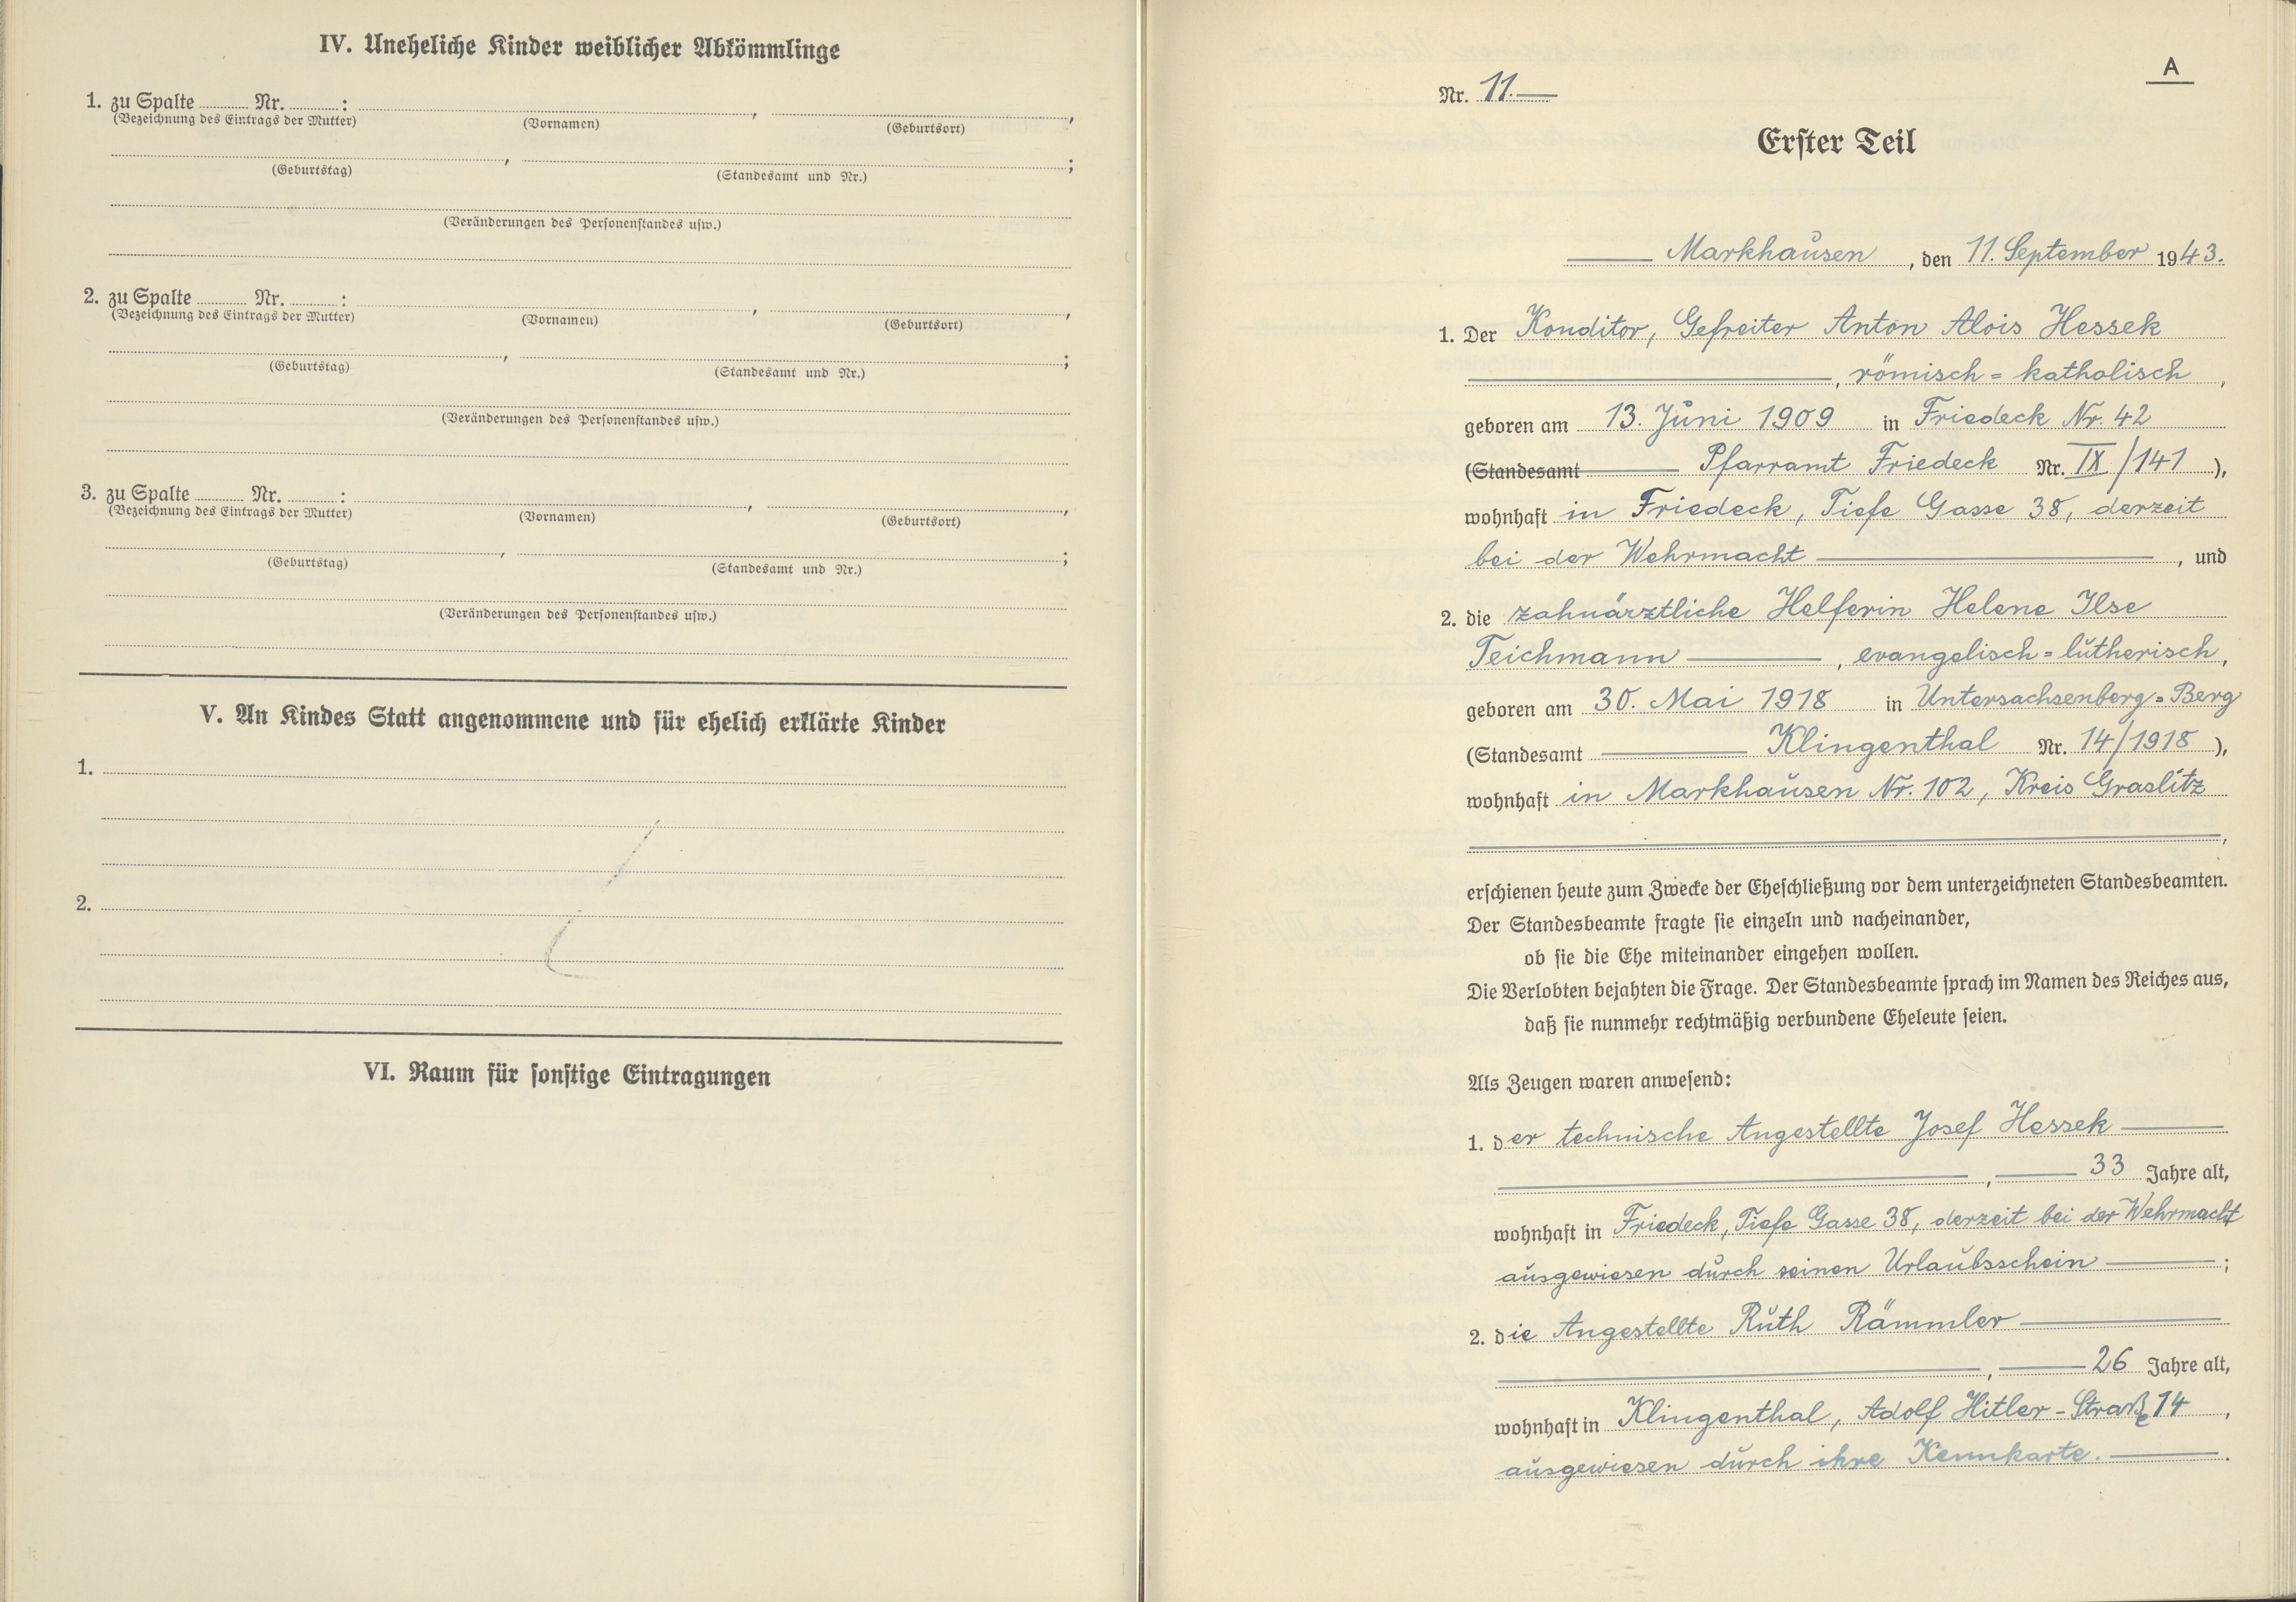 IV. Uneheliche Kinder weiblicher Abkömmlinge
1. zu Spalte ........ Nr. ........ : ........ , ........ ,
(Bezeichnung des Eintrags der Mutter) (Vornamen) (Geburtsort)
........ , ........ ;
(Geburtstag) (Standesamt und Nr.)
(Veränderungen des Personenstandes usw.)
2. zu Spalte ........ Nr. ........ : ........ , ........ ,
(Bezeichnung des Eintrags der Mutter) (Vornamen) (Geburtsort)
........ , ........ ;
(Geburtstag) (Standesamt und Nr.)
(Veränderungen des Personenstandes usw.)
3. zu Spalte ........ Nr. ........ : ........ , ........ ,
(Bezeichnung des Eintrags der Mutter) (Vornamen) (Geburtsort)
........ , ........ ;
(Geburtstag) (Standesamt und Nr.)
(Veränderungen des Personenstandes usw.)
V. An Kindes Statt angenommene und für ehelich erklärte Kinder
1.
2.
VI. Raum für sonstige Eintragungen
A
Nr. 11.
Erster Teil
Markhausen, den 11. September 1943.
1. Der Konditor, Gefreiter Anton Alois Hessek
, römisch=katholisch,
geboren am 13. Juni 1909 in Friedeck Nr. 42
(Standesamt Pfarramt Friedeck Nr. IX/141),
wohnhaft in Friedeck, Tiefe Gasse 38, derzeit
bei der Wehrmacht, und
2. die zahnärztliche Helferin Helene Ilse
Teichmann, evangelisch=lutherisch,
geboren am 30. Mai 1918 in Untersachsenberg=Berg
(Standesamt Klingenthal Nr. 14/1918),
wohnhaft in Markhausen Nr. 102, Kreis Graslitz
,
erschienen heute zum Zwecke der Eheschließung vor dem unterzeichneten Standesbeamten.
Der Standesbeamte fragte sie einzeln und nacheinander,
ob sie die Ehe miteinander eingehen wollen.
Die Verlobten bejahten die Frage. Der Standesbeamte sprach im Namen des Reiches aus,
daß sie nunmehr rechtmäßig verbundene Eheleute seien.
Als Zeugen waren anwesend:
1. der technische Angestellte Josef Hessek
, 33 Jahre alt,
wohnhaft in Friedeck, Tiefe Gasse 38, derzeit bei der Wehrmacht
ausgewiesen durch seinen Urlaubsschein;
2. die Angestellte Ruth Rämmler
, 26 Jahre alt,
wohnhaft in Klingenthal, Adolf Hitler-Straße 14,
ausgewiesen durch ihre Kennkarte.